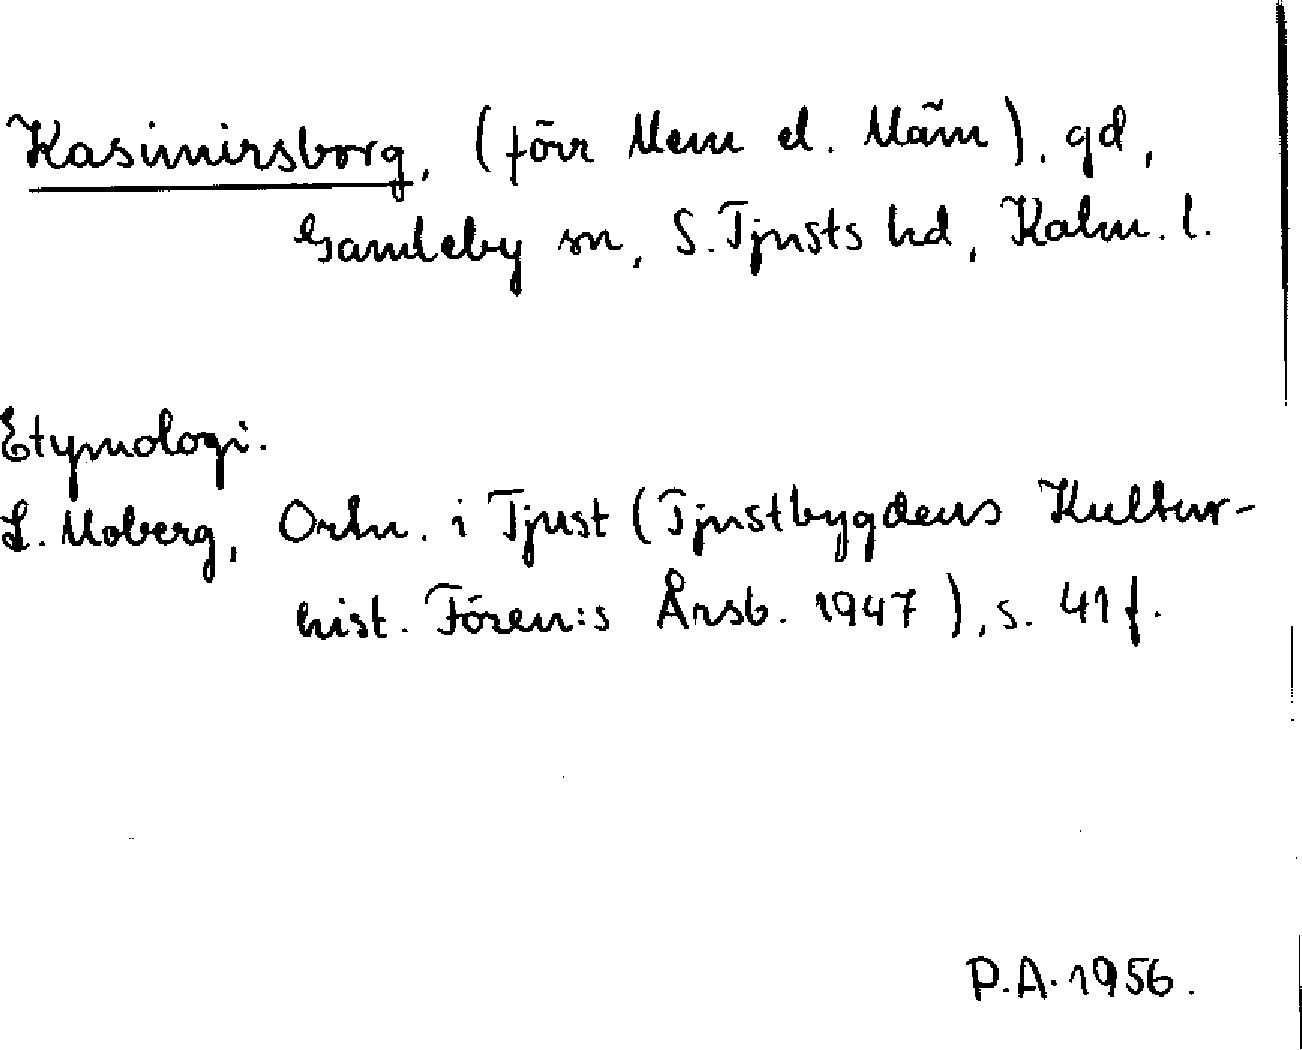 Kasimirsborg, (förr Mem el. Mäm), gd,
Gamleby sn, S. Tjusts hd, Kalm. l.
Etymologi.
L. Moberg, Ortn. i Tjust (Tjustbygdens Kultur-
hist. Fören:s Årsb. 1947), s. 41 f.
P.A. 1956.